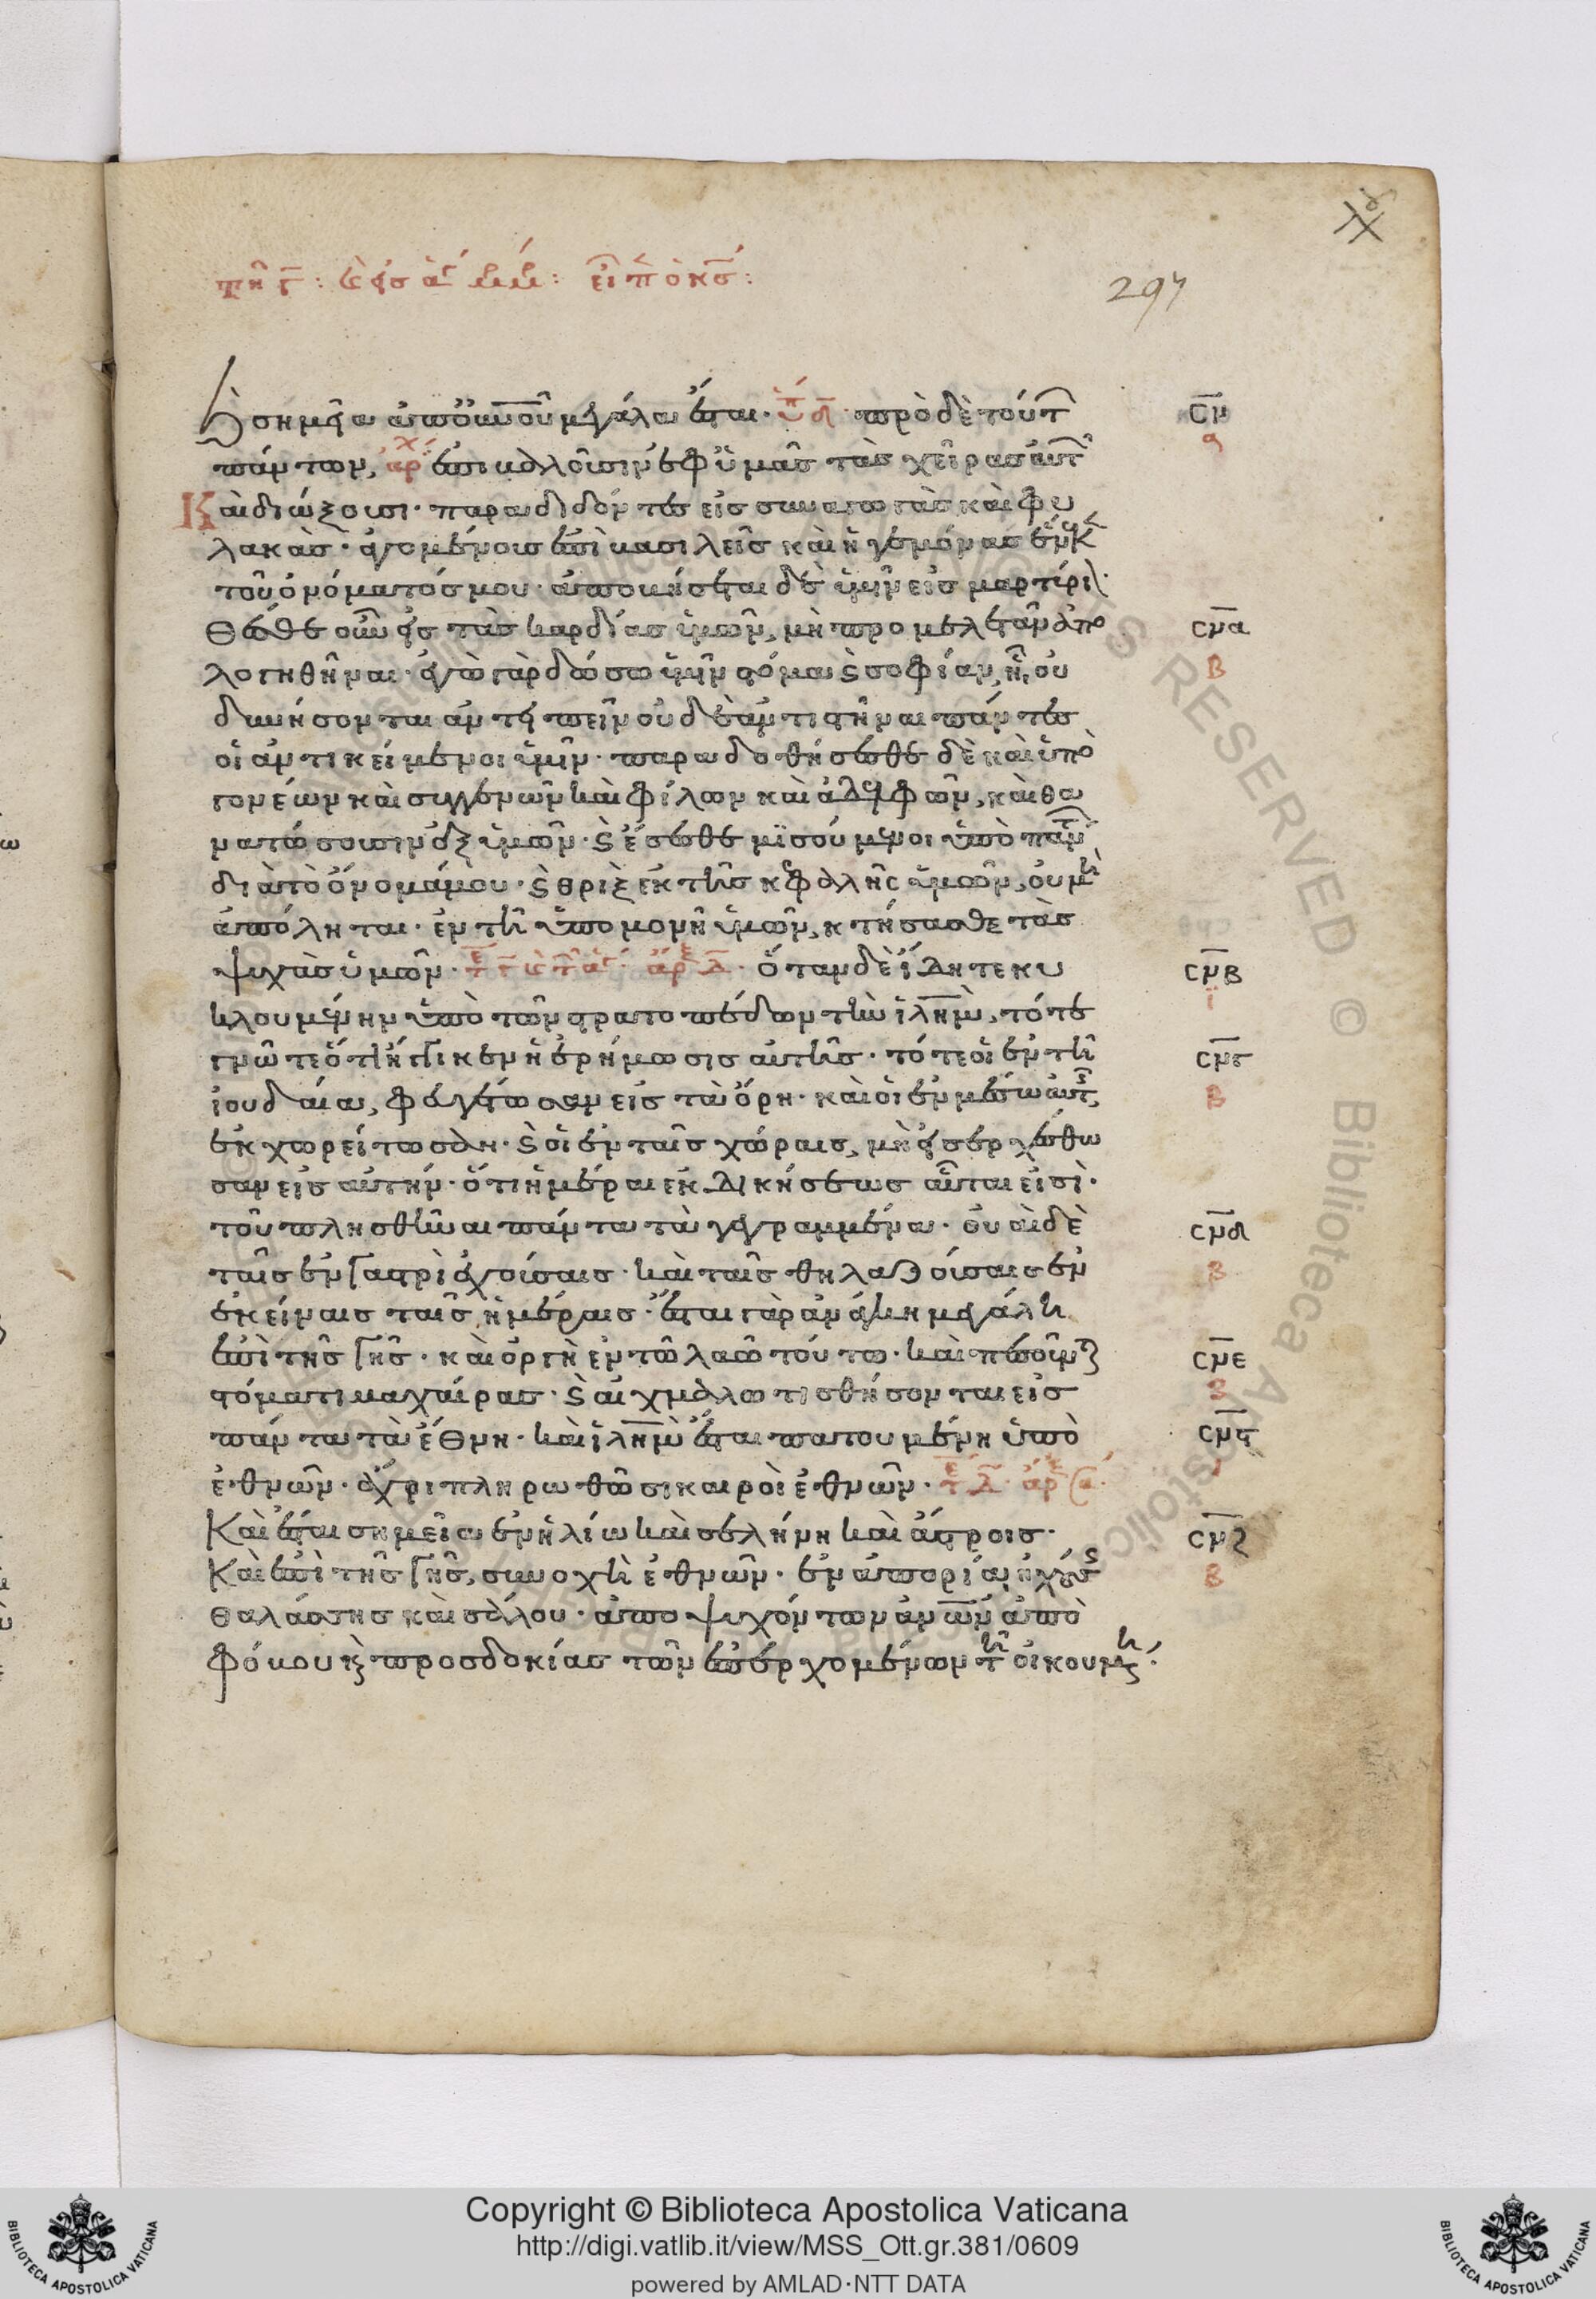 297
καὶ σημεῖα ἀπ' οὐνοῦ μεγάλα ἔσται· πρὸ δὲ τούτ
πάντων, ἐπιβαλοῦσιν ἐφ' ὑμᾶς τὰς χεῖρας αὐτ
Καὶ διώξουσι· παραδιδόντες εἰς συναγωγὰς καὶ φυ
λακὰς· ἀγομένους ἐπὶ βασιλεῖς καὶ ἡγεμόνας ἕνεκ
τοῦ ὀνόματός μου· ἀποβήσεται δὲ ὑμῖν εἰς μαρτύρι
Θέσθε οὖν εἰς τὰς καρδίας ὑμῶν, μὴ προμελετᾶν ἀπο
λογηθῆναι· ἐγὼ γὰρ δώσω ὑμῖν στόμα καὶ σοφίαν, ᾗ οὐ
δυνήσονται ἀντειπεῖν οὐδὲ ἀντιστῆναι πάντες
οἱ ἀντικείμενοι ὑμῖν· παραδοθήσεσθε δὲ καὶ ὑπὸ
γονέων καὶ συγγενῶν καὶ φίλων καὶ ἀδελφῶν, καὶ θα
νατώσουσιν ἐξ ὑμῶν· καὶ ἔσεσθε μισούμενοι ὑπὸ πάντ
διὰ τὸ ὄνομά μου· καὶ θρὶξ ἐκ τῆς κεφαλῆς ὑμῶν, οὐ μὴ
ἀπόληται· ἐν τῇ ὑπομονῇ ὑμῶν, κτήσασθε τὰς
ψυχὰς ὑμῶν· ὅταν δὲ ἴδητε κυ
κλουμένην ὑπὸ τῶν στρατοπέδων τὴν ἱλημ, τότε
γνῶτε ὅτι ἤγγικεν ἡ ἐρήμωσις αὐτῆς· τότε οἱ ἐν τῇ
ἰουδαία, φευγέτωσαν εἰς τὰ ὄρη· καὶ οἱ ἐν μέσω αὐτ
ἐκχωρείτωσαν· καὶ οἱ ἐν ταῖς χώραις, μὴ εἰσερχέσθω
σαν εἰς αὐτήν· ὅτι ἡμέραι ἐκδικήσεως αὗται εἰσὶ·
τοῦ πλησθῆναι πάντα τὰ γεγραμμένα· οὐαὶ δὲ
ταῖς ἐν γαστρὶ ἐχούσαις· καὶ ταῖς θηλαζούσαις ἐν
ἐκείναις ταῖς ἡμέραις· ἔσται γὰρ ἀνάγκη μεγάλη
ἐπὶ τῆς γῆς· καὶ ὀργὴ ἐν τῶ λαῶ τούτω· καὶ πεσοῦνται
στόματι μαχαίρας· καὶ αἰχμαλωτισθήσονται εἰς
πάντα τὰ ἔθνη· καὶ ἱλημ ἔσται πατουμένη ὑπὸ
ἐθνῶν· ἄχρι πληρωθῶσι καιροὶ ἐθνῶν·
Καὶ ἔσται σημεῖα ἐν ἡλίω καὶ σελήνη καὶ ἄστροις·
Καὶ ἐπὶ τῆς γῆς, συνοχὴ ἐθνῶν· ἐν ἀπορία ἠχούσης
θαλάσσης καὶ σάλου· ἀποψυχόντων ἀνων ἀπὸ
φόβου καὶ προσδοκίας τῶν ἐπερχομένων τῇ οἰκουμένη·
ϲμ
ϲμα
β
ϲμβ
ϊ
ϲμγ
β
ϲμδ
β
ϲμε
β
ϲμϛ
ϲμζ
β
© Biblioteca Apostolica
RESERVED
Copyright © Biblioteca Apostolica Vaticana
http://digi.vatlib.it/view/MSS_Ott.gr.381/0609
powered by AMLAD·NTT DATA
BIBLIOTECA APOSTOLICA VATICANA
BIBLIOTECA APOSTOLICA VATICANA